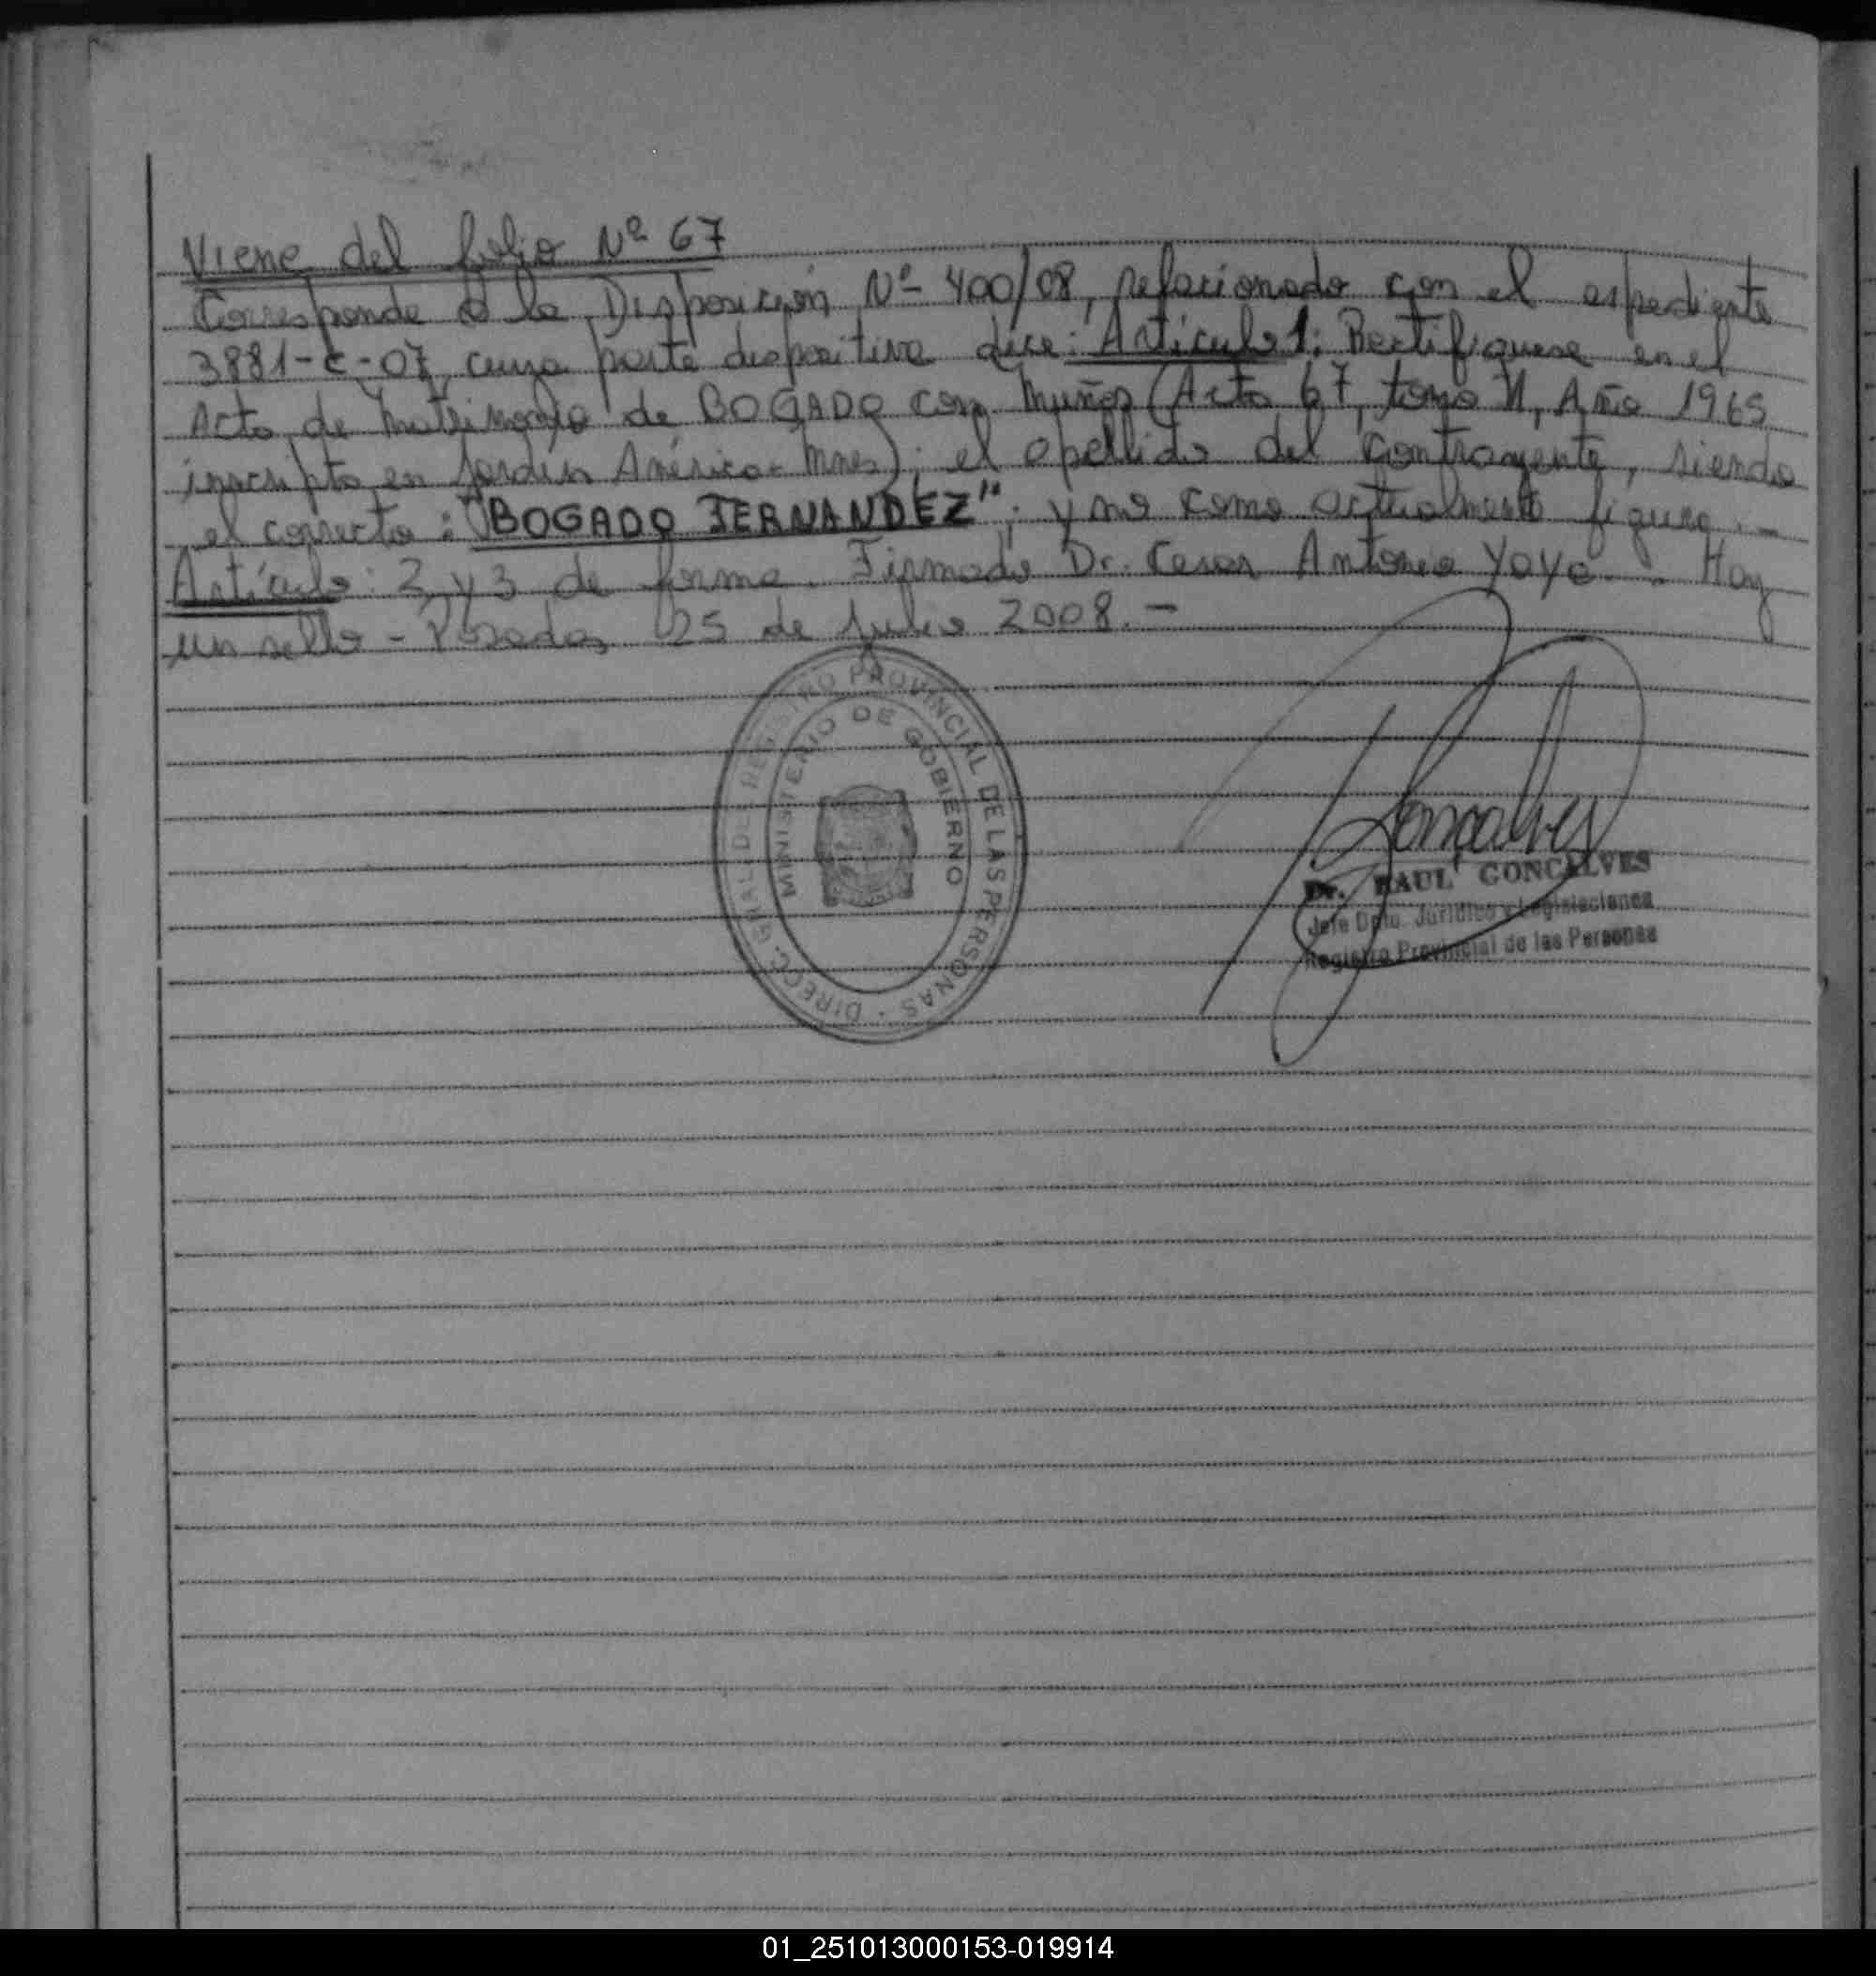 Viene del folio Nº 67
Corresponde a la Disposición Nº 400/08, relacionado con el expediente
3881-C-07, cuya parte dispositiva dice: Artículo 1: Rectifíquese en el
Acta de Matrimonio de BOGADO con Muñoz (Acta 67, tomo, Año 1965
inscripta en Jardín América - Mnes); el apellido del contrayente, siendo
el correcto: "BOGADO FERNANDEZ"; y no como actualmente figura.-
Artículo: 2 y 3 de forma. Firmado Dr. Cesar Antonio Yaya. Hay
un sello - Posadas, 25 de Julio 2008.-
DIRECC. GRAL. DE REGISTRO PROVINCIAL DE LAS PERSONAS
MINISTERIO DE GOBIERNO
Goncalves
Dr. RAUL GONCALVES
Jefe Dpto. Jurídico y Legislaciones
Registro Provincial de las Personas
01_251013000153-019914